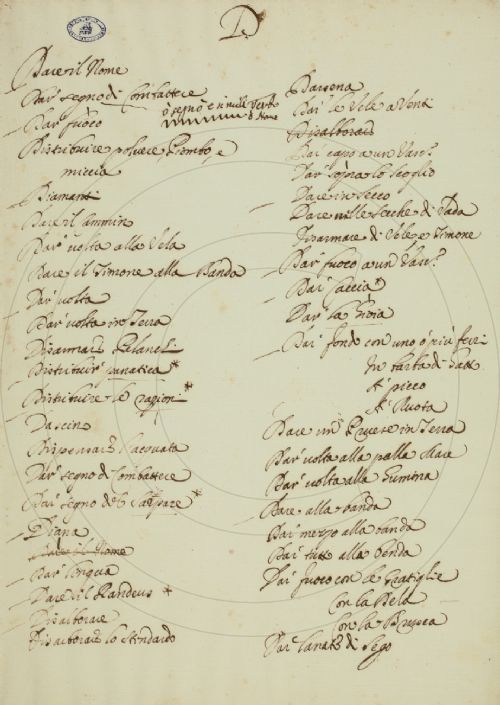 D.
Dare il Nome
Dar segno di Combattere
ò segno è in
Dar fuoco
Distribuire polvere Piombo, e
miccia
Diamant
Dare il
Dar volta alla Vela
Dare il Timone alla Banda
Dar volta
Dar volta in Terra
Disarmar
Distribuir panatica *
Distribuire le razion *
Dispensar l'acquata
Dar segno di Combattere
Dar segno di Salpare *
Diana
Dare il Nome
Dar lingua
Dare il Randeus *
Disalborare
Disarborar lo Stendardo
Darsena
Dar le Vele a Venti
Disalborar
Dar capo a un Vasc.º
Dar sopra lo Scoglio
Dare in Secco
Dare nelle Secche di
Disarmare di Vele e Timone
Dar fuoco a un Vasc.º
Dar caccia *
Dar la Gioia
Dar fondo con uno ò più ferri
In barba di Gatt
A picco
A Ruota
Dare un Provese in Terra
Dar volta alla palla Mare
Dar volta alla Gumina
Dare alla banda
Dar mezzo alla banda
Dar tutt alla banda
Dar fuoco con le
Con la
Con la Brusca
Dar di Sego